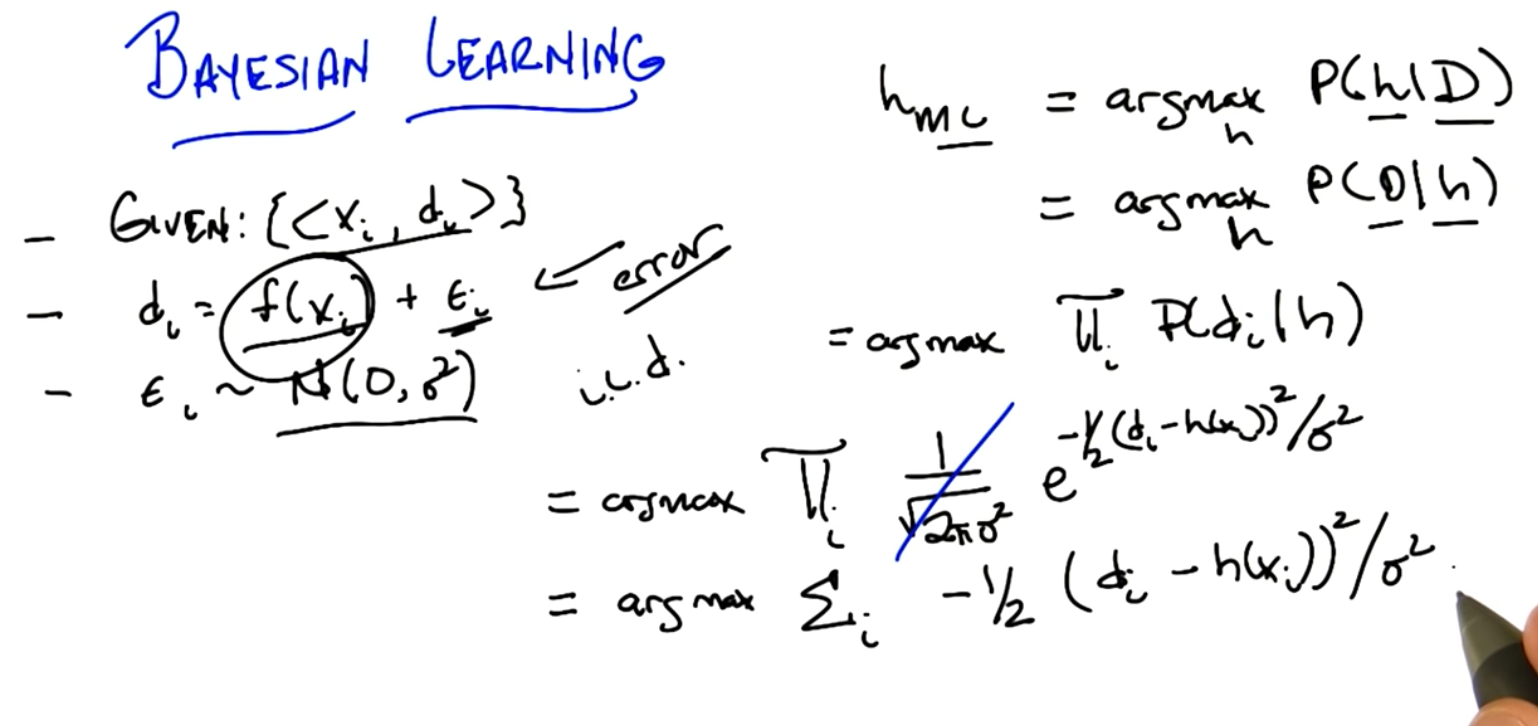 BAYESIAN LEARNING
- GIVEN: {<xᵢ, dᵢ>}
- dᵢ = f(xᵢ) + εᵢ ← error
- εᵢ ~ N(0, σ²) i.i.d.
h_ML = argmax_h P(h|D)
= argmax_h P(D|h)
= argmax ∏ᵢ P(dᵢ|h)
= argmax ∏ᵢ 1/√(2πσ²) e^(-1/2 (dᵢ - h(xᵢ))²/σ²)
= argmax Σᵢ -1/2 (dᵢ - h(xᵢ))²/σ²